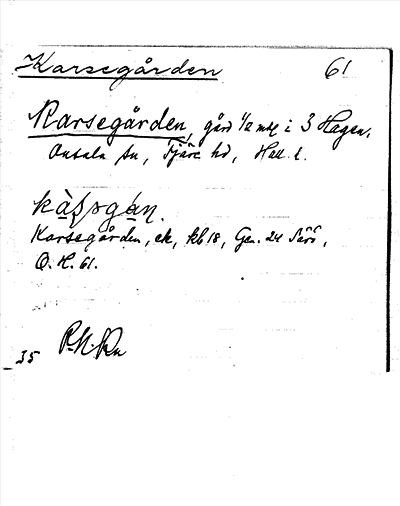 Karsegården 61
Karsegården, gård 1/2 mtl i 3 Hagen,
Onsala sn, Fjäre hd, Hall. l.
Karsegården, ek, kb 18, Gen. 24 Särö,
O.H. 61.
35